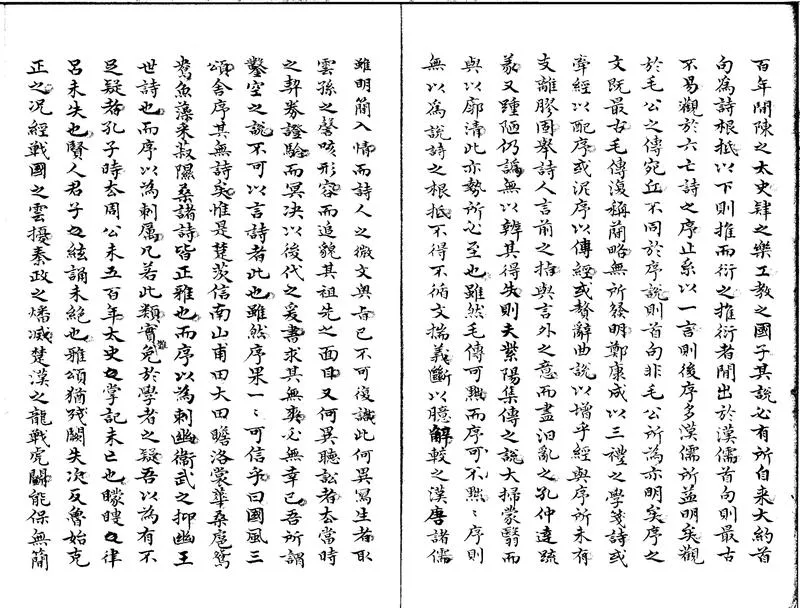 百年間陳之太史肄之樂工教之國子其說必有所自来大約首
句為詩根柢以下則推而衍之推衍者間出於漢儒首句則最古
不易觀於六亡詩之序止系以一言則後序多漢儒所益明矣觀
於毛公之傳宛丘不同於序說則首句非毛公所為亦明矣序之
文既最古毛傳復稱簡略無所發明鄭康成以三禮之學箋詩或
牽經以配序或泥序以傅經或贅辭曲說以增乎經與序所未有
支離膠固舉詩人言前之指與言外之意而盡汩亂之孔仲達疏
義又踵陋仍譌無以辨其得失則夫紫陽集傳之說大掃蒙翳而
與以廓清此亦勢所必至也雖然毛傳可黜而序可不黜黜序則
無以為說詩之根柢不得不循文揣義斷以臆解較之漢唐諸儒
雖明簡入情而詩人之微文與古已不可復識此何異寫生者取
雲孫之謦咳形容而追貌其祖先之面目又何異聽訟者去當時
之契券證驗而冥決以後代之爰書求其無爽必無幸已吾所謂
鑿空之說不可以言詩者此也雖然序果一一可信乎曰國風三
頌舍序其無詩矣惟是楚茨信南山甫田大田瞻洛裳華桑扈鴛
鴦魚藻采菽隰桑諸詩皆正雅也而序以為刺幽衛武之抑幽王
世詩也而序以為刺厲凡若此類實滋於學者之疑吾以為有不
足疑者孔子時去周公未五百年太史之掌記未亡也矇瞍之律
呂未失也賢人君子之絃誦未絕也雅頌猶殘闕失次反魯始克
正之況經戰國之雲擾秦政之燔滅楚漢之龍戰虎鬬能保無簡